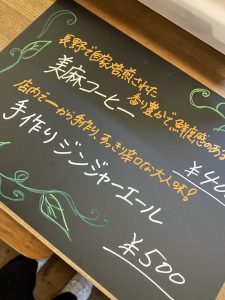 長野で自家焙煎された
香り豊かで鮮度感のある
美麻コーヒー
¥40
店内で一から手作り、すっきり辛口な大人味!
手作りジンジャーエール
¥500